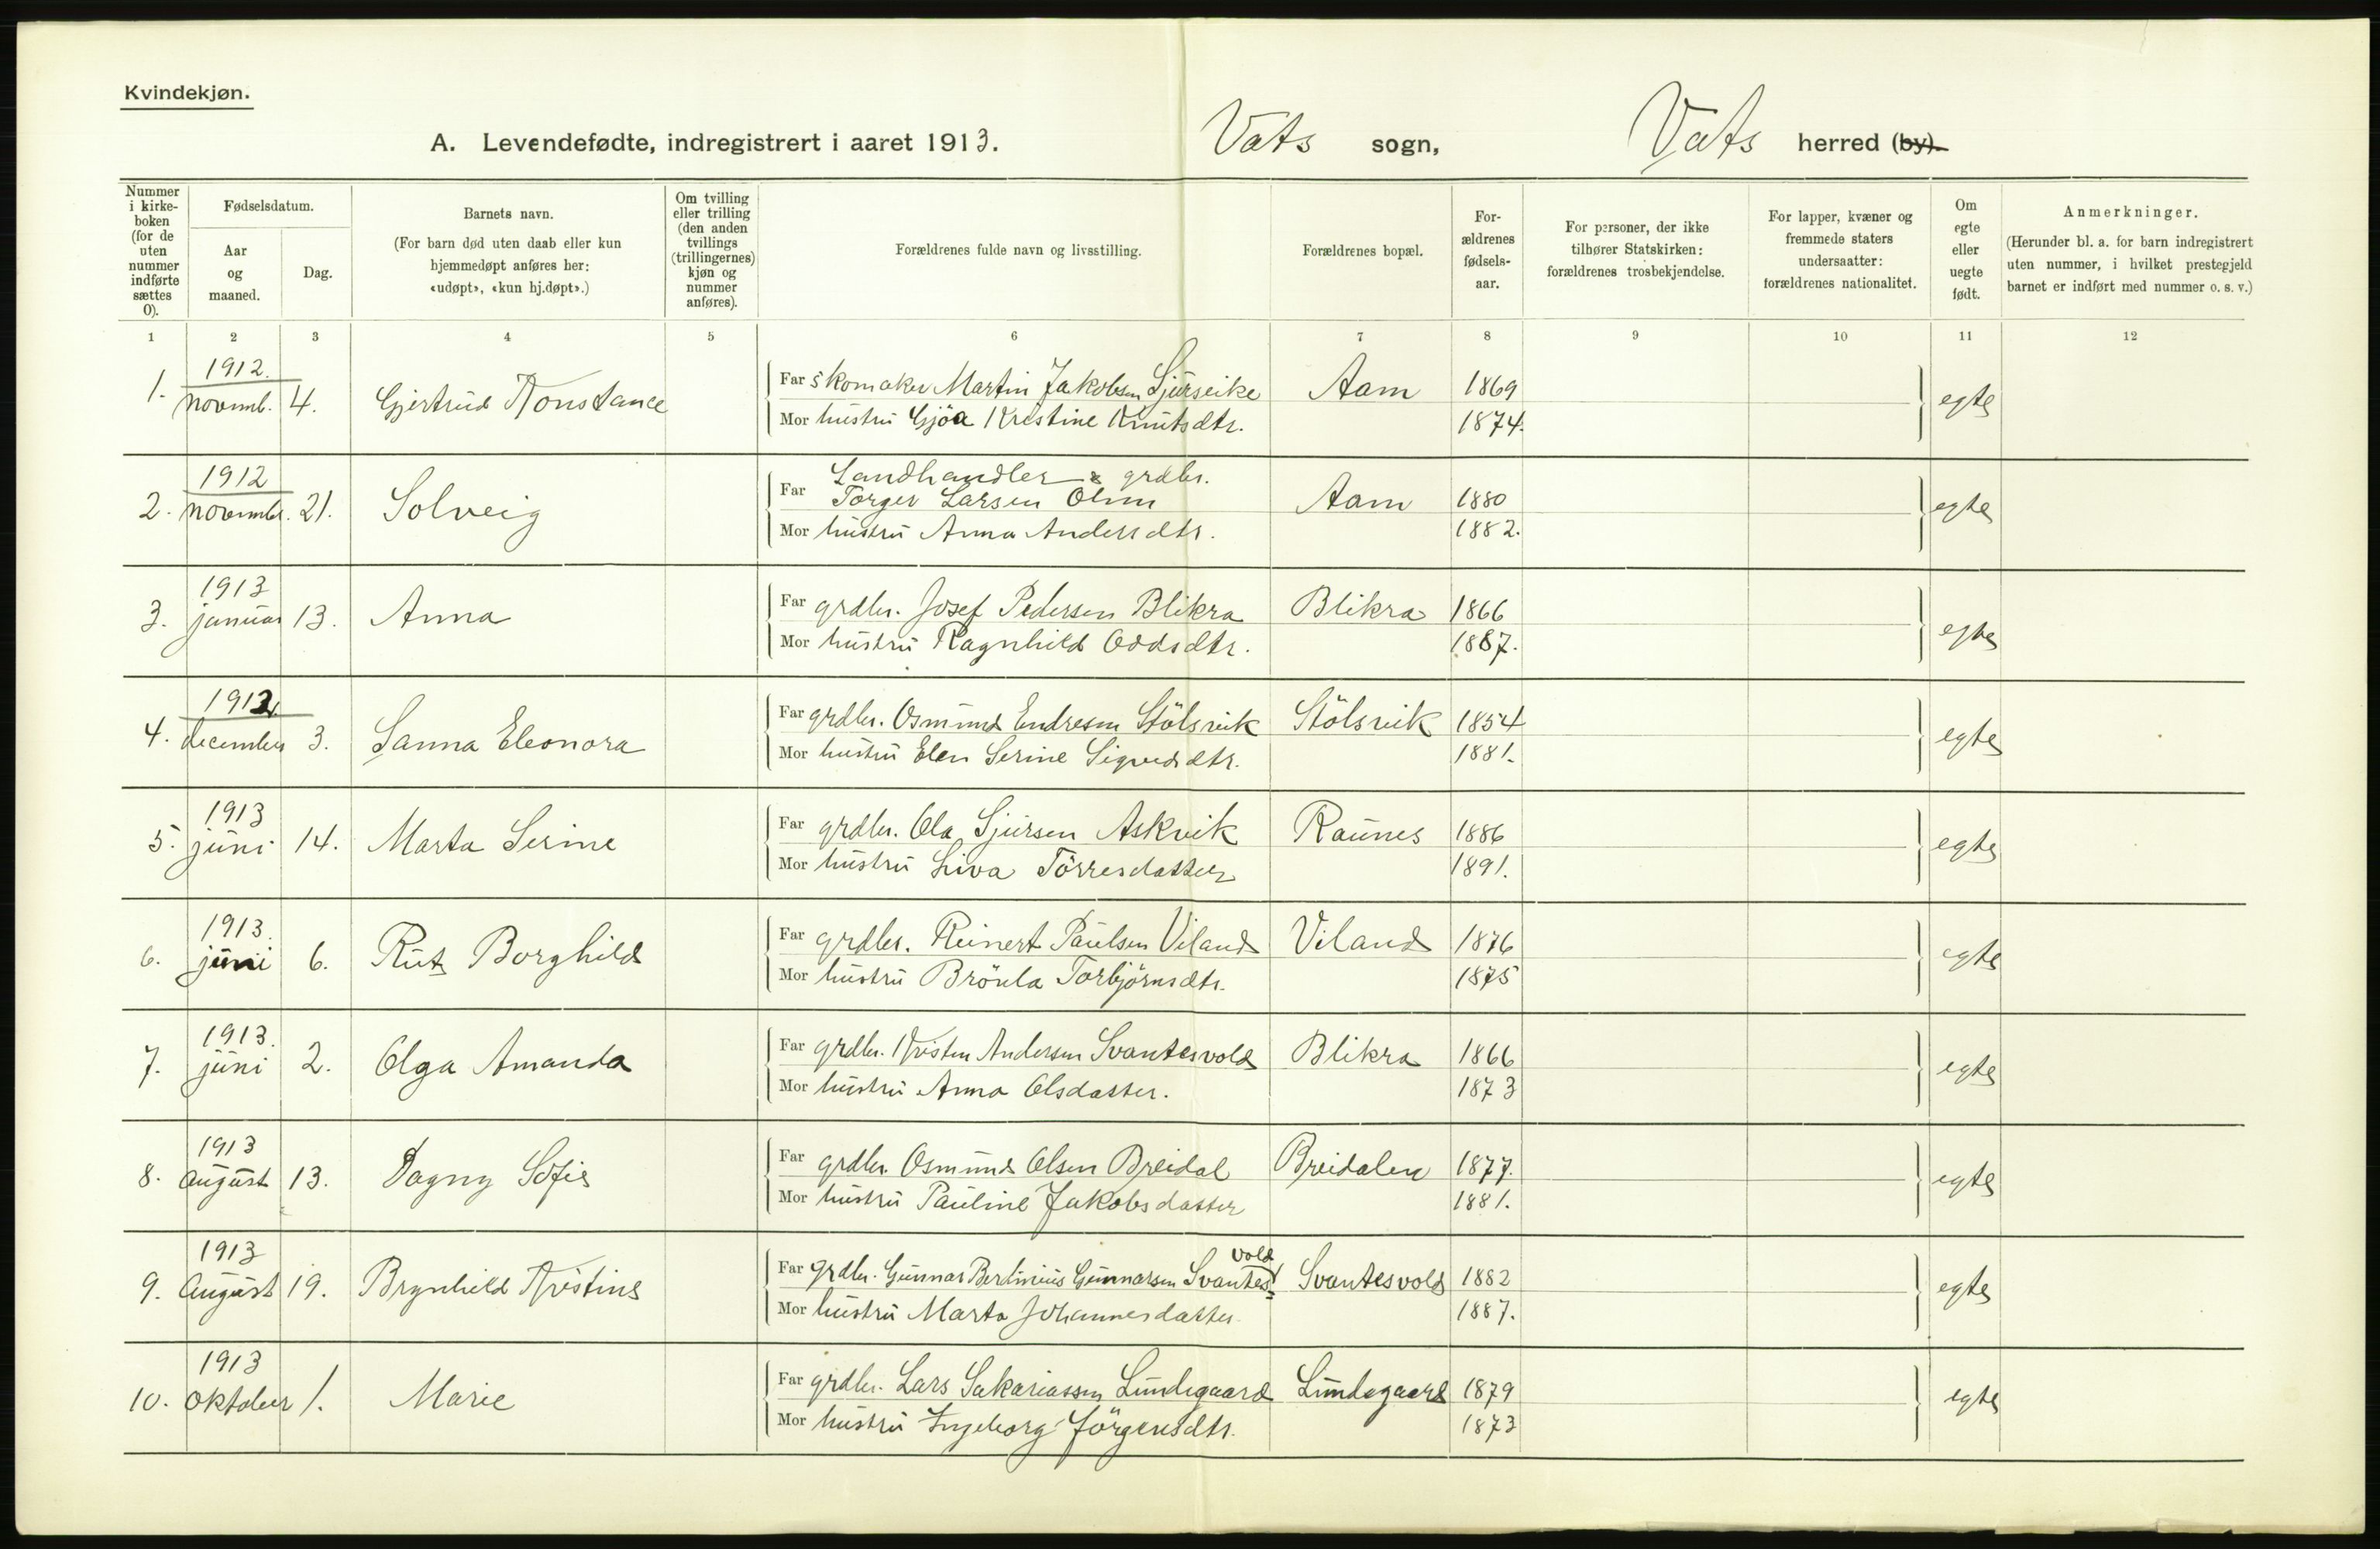 Kvindekjøn.
A. Levendefødte, indregistrert i aaret 1913. Vats sogn, Vats herred (by).
Nummer i kirke-boken (for de uten nummer indførte sættes 0).
Fødselsdatum.
Aar og maaned.
Dag.
Barnets navn.
(For barn død uten daab eller kun hjemmedøpt anføres her: «udøpt», «kun hj.døpt».)
Om tvilling eller trilling (den anden tvillings (trillingernes) kjøn og nummer anføres).
Forældrenes fulde navn og livsstilling.
Forældrenes bopæl.
For-ældrenes fødsels-aar.
For personer, der ikke tilhører Statskirken: forældrenes trosbekjendelse.
For lapper, kvæner og fremmede staters undersaatter: forældrenes nationalitet.
Om egte eller uegte født.
Anmerkninger.
(Herunder bl. a. for barn indregistrert uten nummer, i hvilket prestegjeld barnet er indført med nummer o. s. v.)
1 2 3 4 5 6 7 8 9 10 11 12
1912.
1. novemb. 4. Gjertrud Konstance Far skomaker Martin Jakobsen Sjurseike Aam 1869 egte
Mor hustru Gjöa Kristine Knutsdtr. 1874.
1912
Landhandler & grdbr.
2. novembr. 21. Solveig Far Torger Larsen Olmm Aam 1880 egte
Mor hustru Anna Andersdtr. 1882.
1913
3. januar 13. Anna Far grdbr. Josef Pedersen Blikra Blikra 1866 egte
Mor hustru Ragnhild Oddsdtr. 1887.
1912
4. december 3. Sanna Eleonora Far grdbr. Osmund Endresen Stölsvik Stölsvik 1854 egte
Mor hustru Elen Serine Sigvedsdtr. 1881.
1913
5. juni 14. Marta Serine Far grdbr. Ola Sjursen Askvik Raunes 1886 egte
Mor hustru Liva Törresdatter 1891.
1913.
6. juni 6. Rut Borghild Far grdbr. Reinert Paulsen Viland Viland 1876 egte
Mor hustru Brönla Torbjörnsdtr. 1875
1913.
7. juni 2. Olga Amanda Far grdbr. Kristen Andersen Svantesvold Blikra 1866 egte
Mor hustru Anna Olsdatter. 1873
1913
8. august 13. Dagny Sofie Far grdbr. Osmund Olsen Breidal Breidalen 1877. egte
Mor hustru Pauline Jakobsdatter 1881.
1913
9. August 19. Brynhild Kristine Far grdbr. Gunnar Bertinius Gunnarsen Svantesvold Svantesvold 1882 egte
Mor hustru Marta Johannesdatter 1887.
1913
10. oktober 1. Marie Far grdbr. Lars Sakariassen Lundegaard Lundegaard 1879 egte
Mor hustru Ingeborg Jörgensdtr. 1873